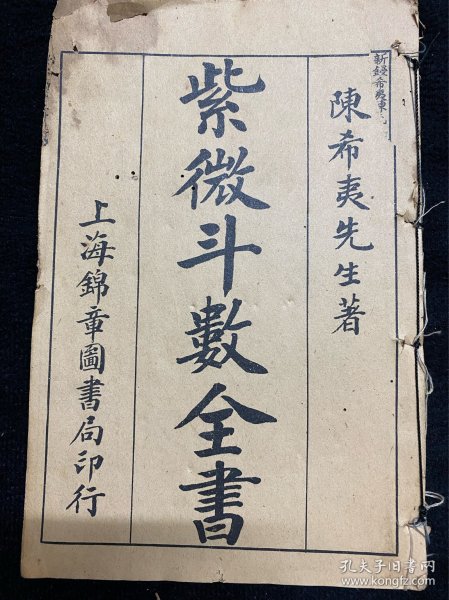 新鋟希夷陳
陳希夷先生著
紫微斗數全書
上海錦章圖書局印行
孔夫子旧书网
www.kongfz.com